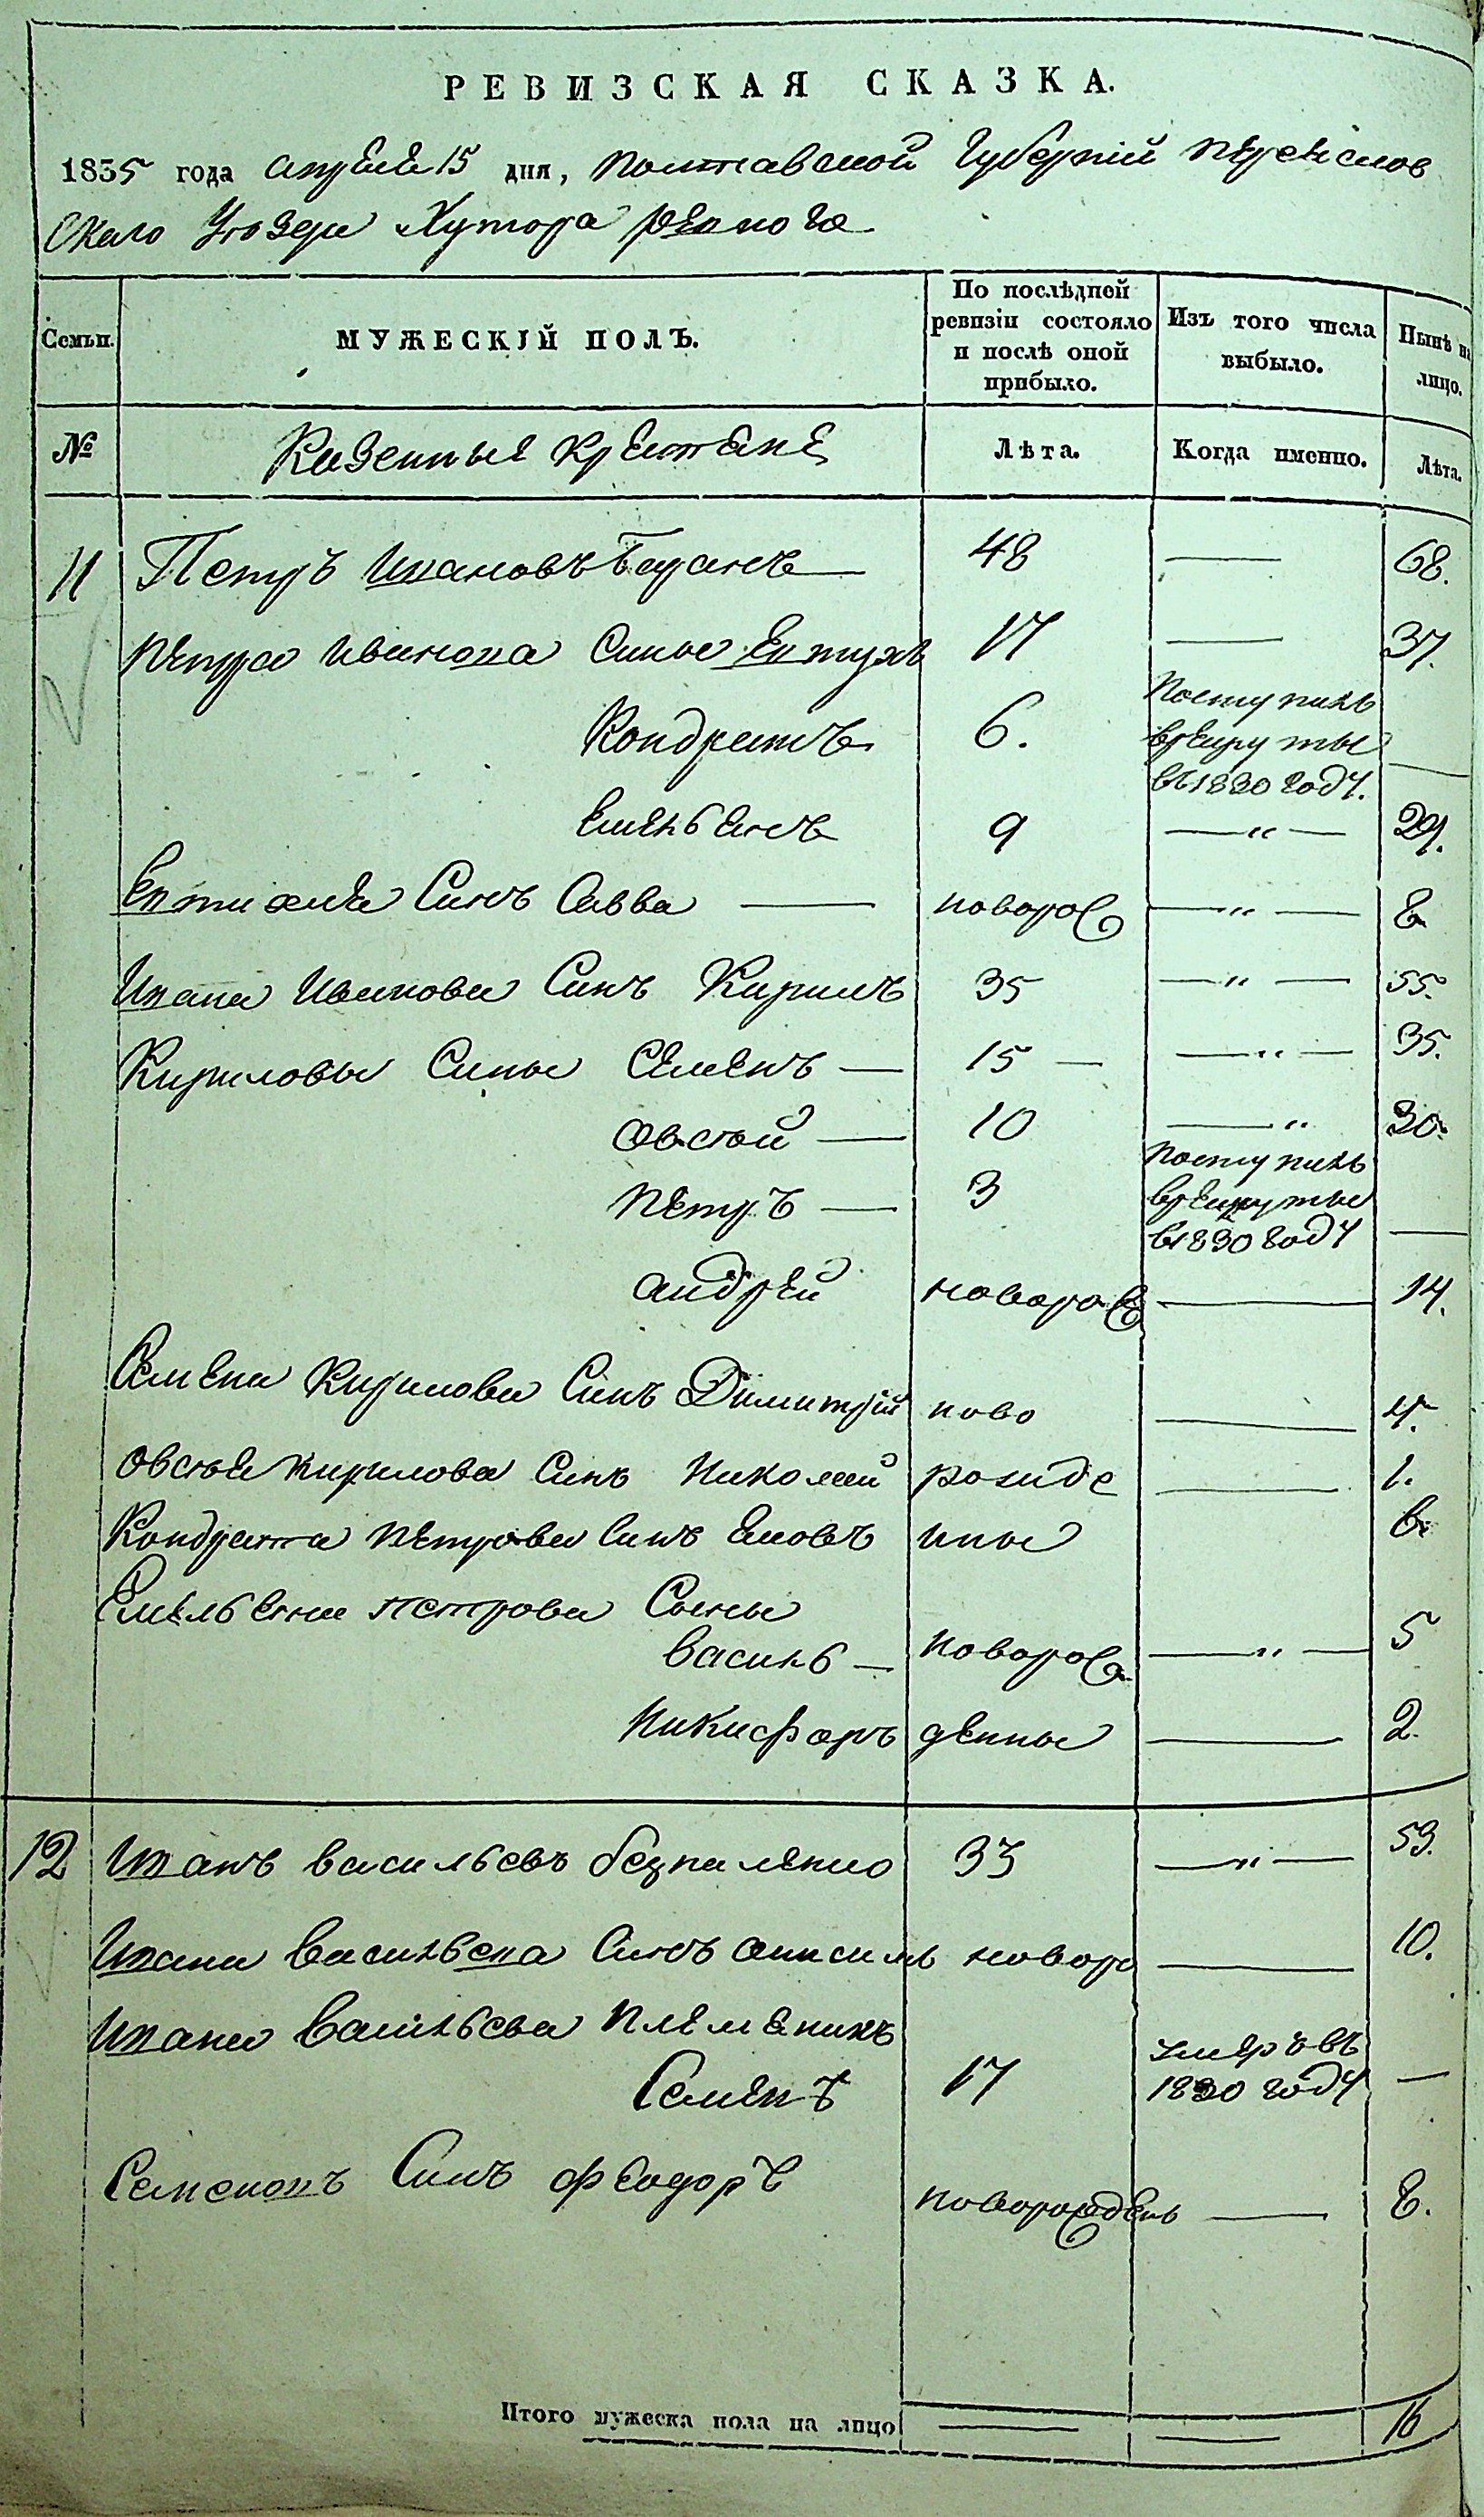 РЕВИЗСКАЯ СКАЗКА.
1835 года апреля 15 дня, Полтавской Губернии Переяслов
скаго Уезда Хутора
Семьи.
МУЖЕСКІЙ ПОЛЪ.
По послѣдней ревизіи состояло и послѣ оной прибыло.
Изъ того числа выбыло.
Нынѣ на лицо.
№
Казенные крестяне
Лѣта.
Когда именно.
Лѣта.
11 Петръ Ивановъ 48 — 68.
Петра Иванова Сины Евтухъ 17 — 37.
Кондратъ 6. Поступилъ
врекруты
въ 1830 году. —
Емельянъ 9 —"— 29.
Евтиохия Синъ Савва — новорож —"— 8
Ивана Иванова Синъ Кирилъ 35 —"— 55.
Кириловы Сины Семенъ — 15 — —"— 35.
Овсѣй — 10 —" 30.
Петръ — 3 Поступилъ
врекруты
в 1830 году —
Андрей новорож — 14.
Семена Кирилова Синъ Димитрій ново — 4.
Овсѣя Кирилова Синъ Николай рожде — 1.
Кондрата Петрова Синъ Яковъ ныи 6.
Емельяна Петрова Сыны
Василь — новорож —"— 5
Никифоръ денны — 2.
12 Иванъ Васильевъ Безпаленко 33 —"— 53.
Ивана Васильева Синъ Анисимъ новоро — 10.
Ивана Васильева Племеникъ
Семенъ 17 умеръ въ
1830 году —
Семеновъ Синъ Феодоръ новорожденъ — 8.
Итого мужеска пола на лицо — — 16